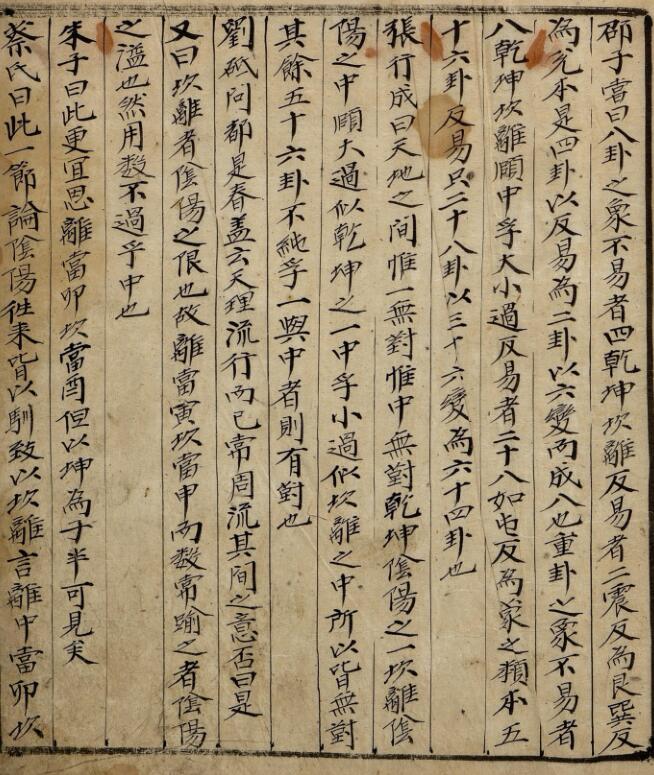 邵子嘗曰八卦之象不易者四乾坤坎離反易者二震反為艮巽反
為兌本是四卦以反易為二卦以六變而成八也重卦之象不易者
八乾坤坎離頤中孚大小過反易者二十八如屯反為蒙之類本五
十六卦反易只二十八卦以三十六變為六十四卦也
張行成曰天地之間惟一無對惟中無對乾坤陰陽之一坎離陰
陽之中頤大過似乾坤之一中孚小過似坎離之中所以皆無對
其餘五十六卦不純乎一與中者則有對也
劉砥問都是春盖云天理流行而已常周流其間之意否曰是
又曰坎離者陰陽之限也故離當寅坎當申而数常踰之者陰陽
之溢也然用数不過乎中也
朱子曰此更宜思離當卯坎當酉但以坤為子半可見矣
蔡氏曰此一節論陰陽徃来皆以馴致以坎離言離中當卯坎